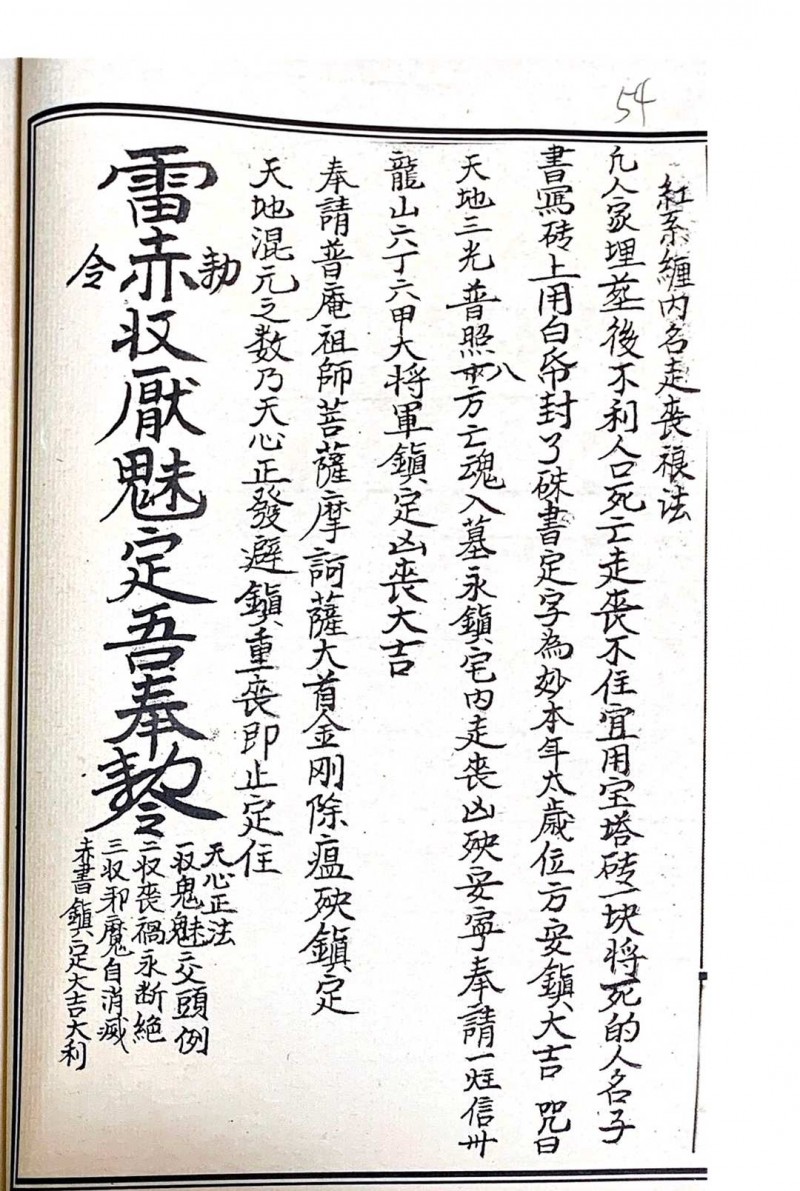 54
紅系纏内名走丧禳法
凡人家埋葬後不利人口死亡走丧不住宜用宝塔砖一块将死的人名子
書寫砖上用白帋封了硃書定字為妙本年太歲位方安鎮大吉 咒曰
天地三光普照八方亡魂入墓永鎮宅内走丧凶殃安寧奉請一炷信卅
龍山六丁六甲大将軍鎮定凶丧大吉
奉請普庵祖師菩薩摩訶薩大首金刚除瘟殃鎮定
天地混元之数乃天心正發避鎮重丧即止定住
勅
雷赤収厭魅定吾奉勅令
令
天心正法
一収鬼魅交頭例
二収丧禍永断絶
三収邪魔自消滅
赤書鎮定大吉大利